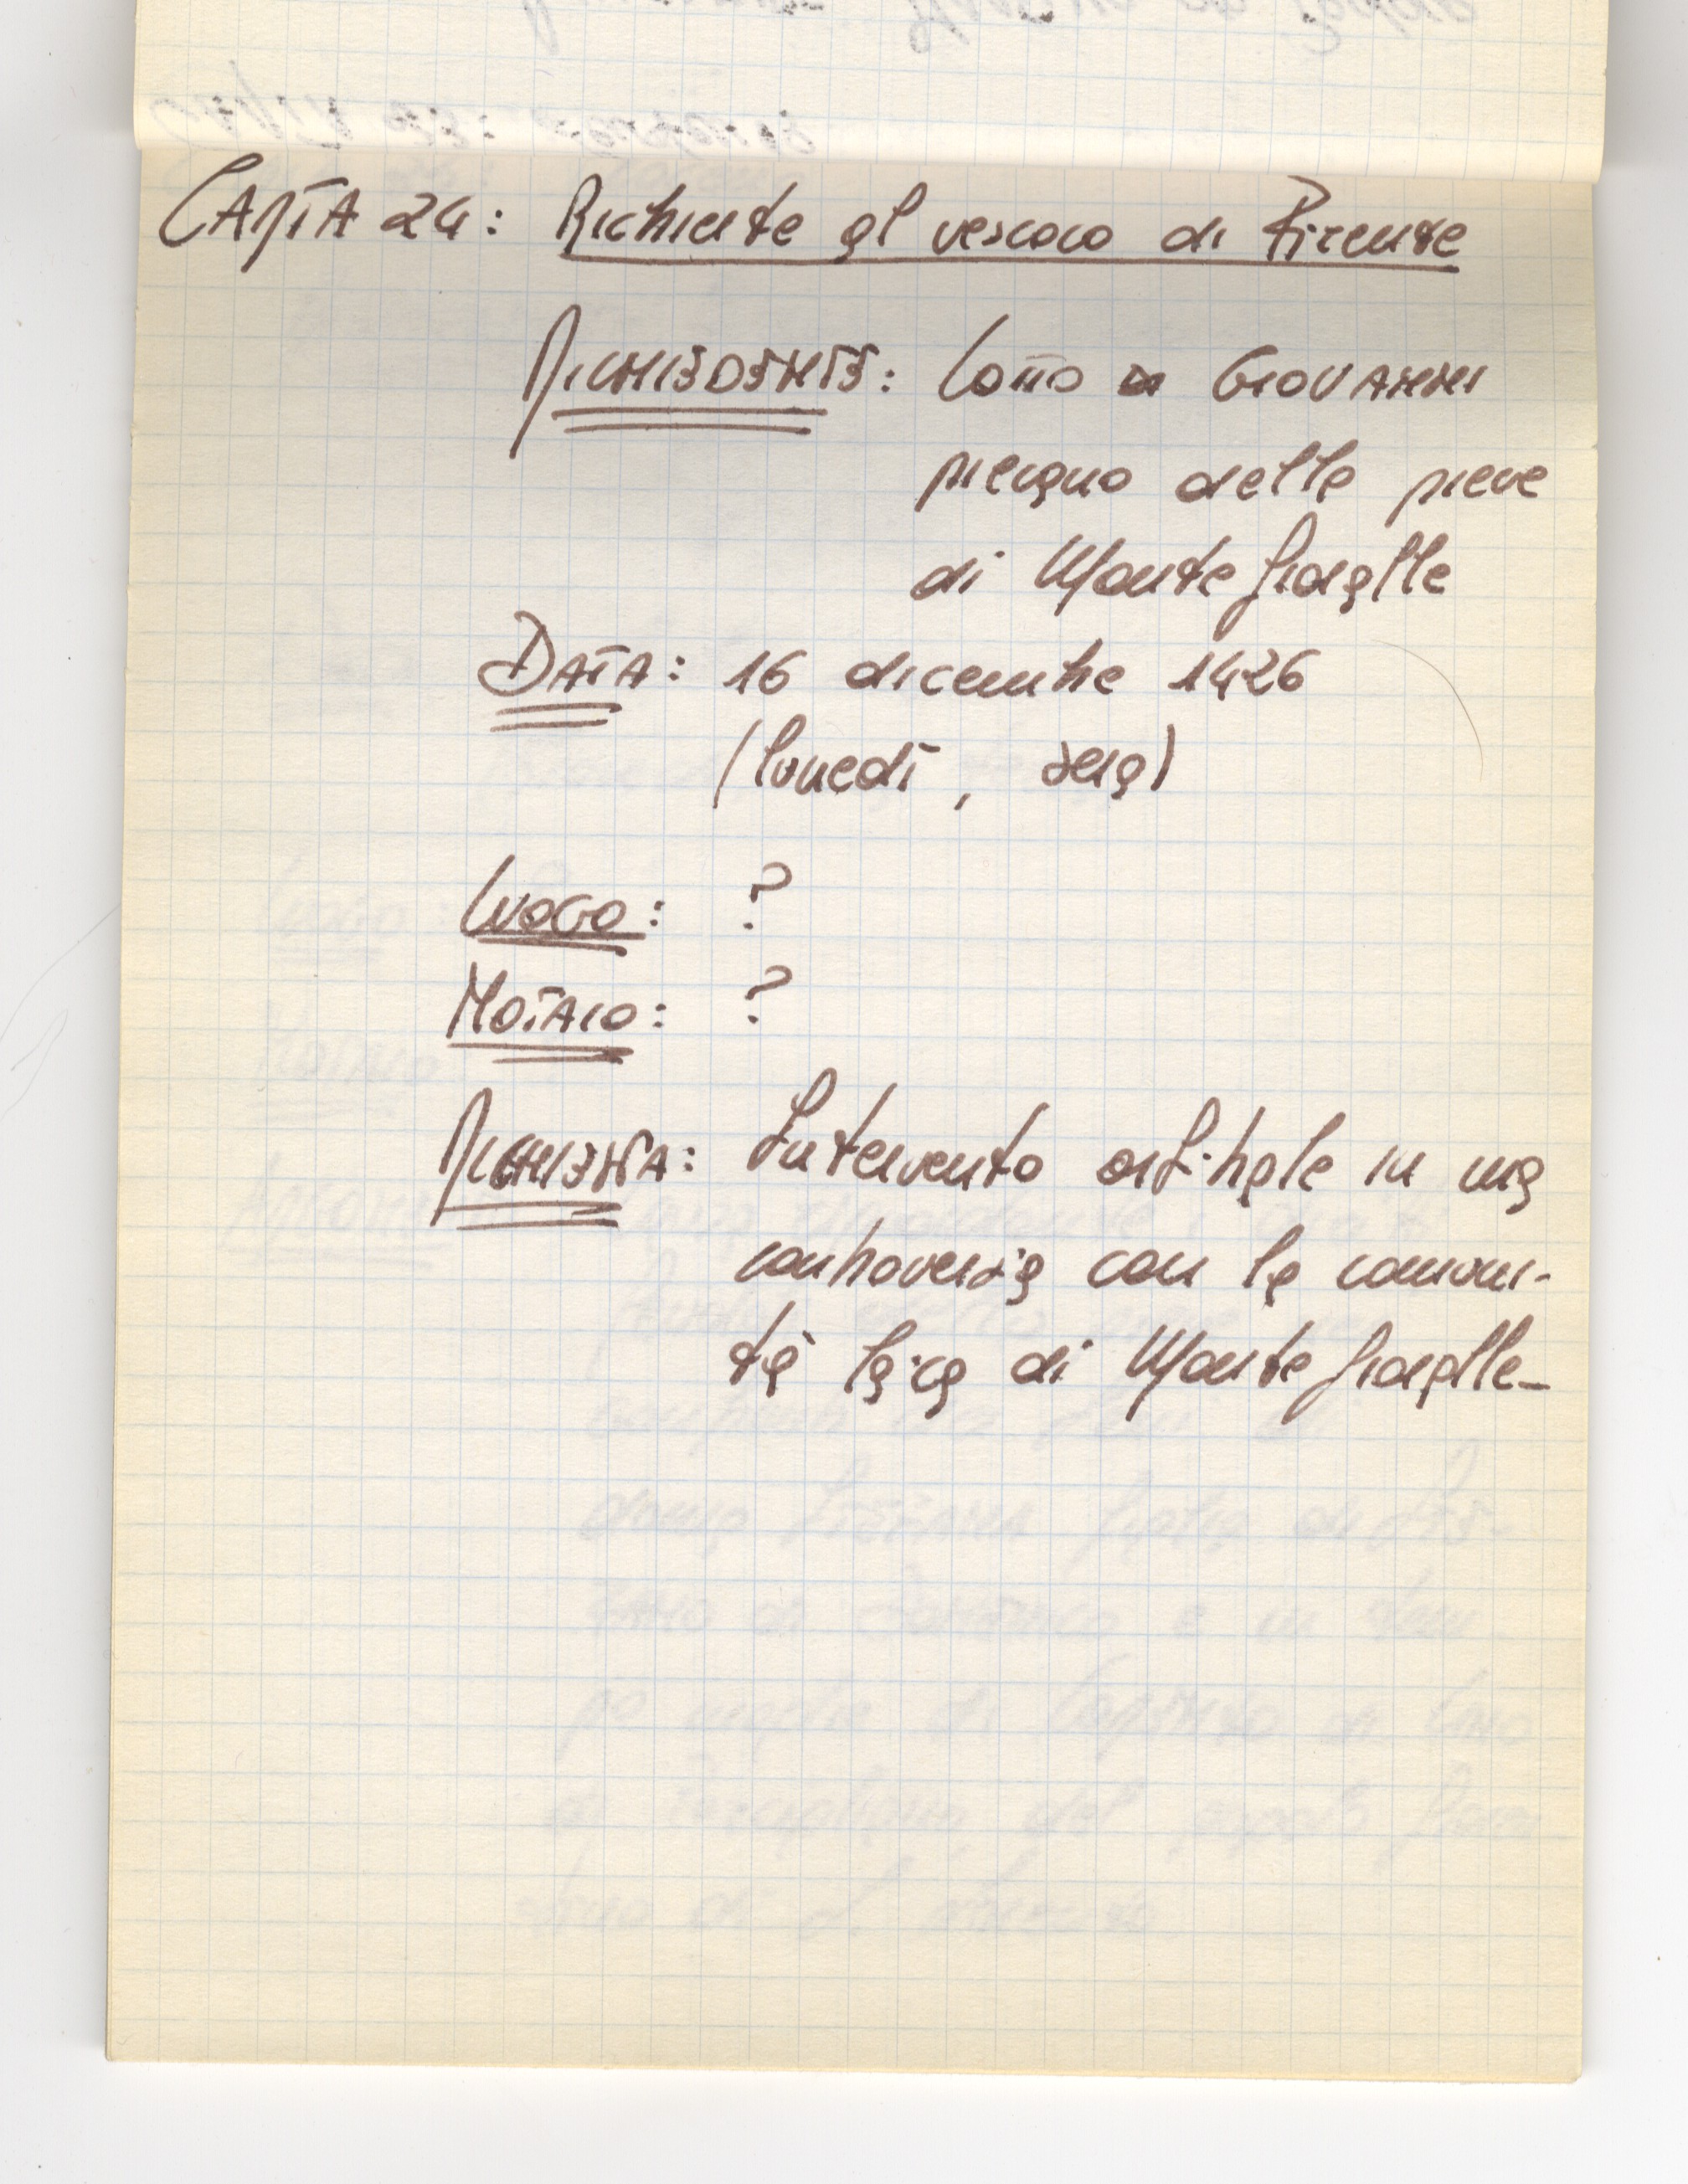 CARTA 24: Richieste al vescovo di Firenze
RICHIEDENTE: di GIOVANNI
pievano della pieve
di Montefioralle
DATA: 16 dicembre 1426
(lunedì, sera)
LUOGO: ?
NOTAIO: ?
RICHIESTA: Intervento arbitrale in una
controversia con la comuni-
tà laica di Montefioralle_